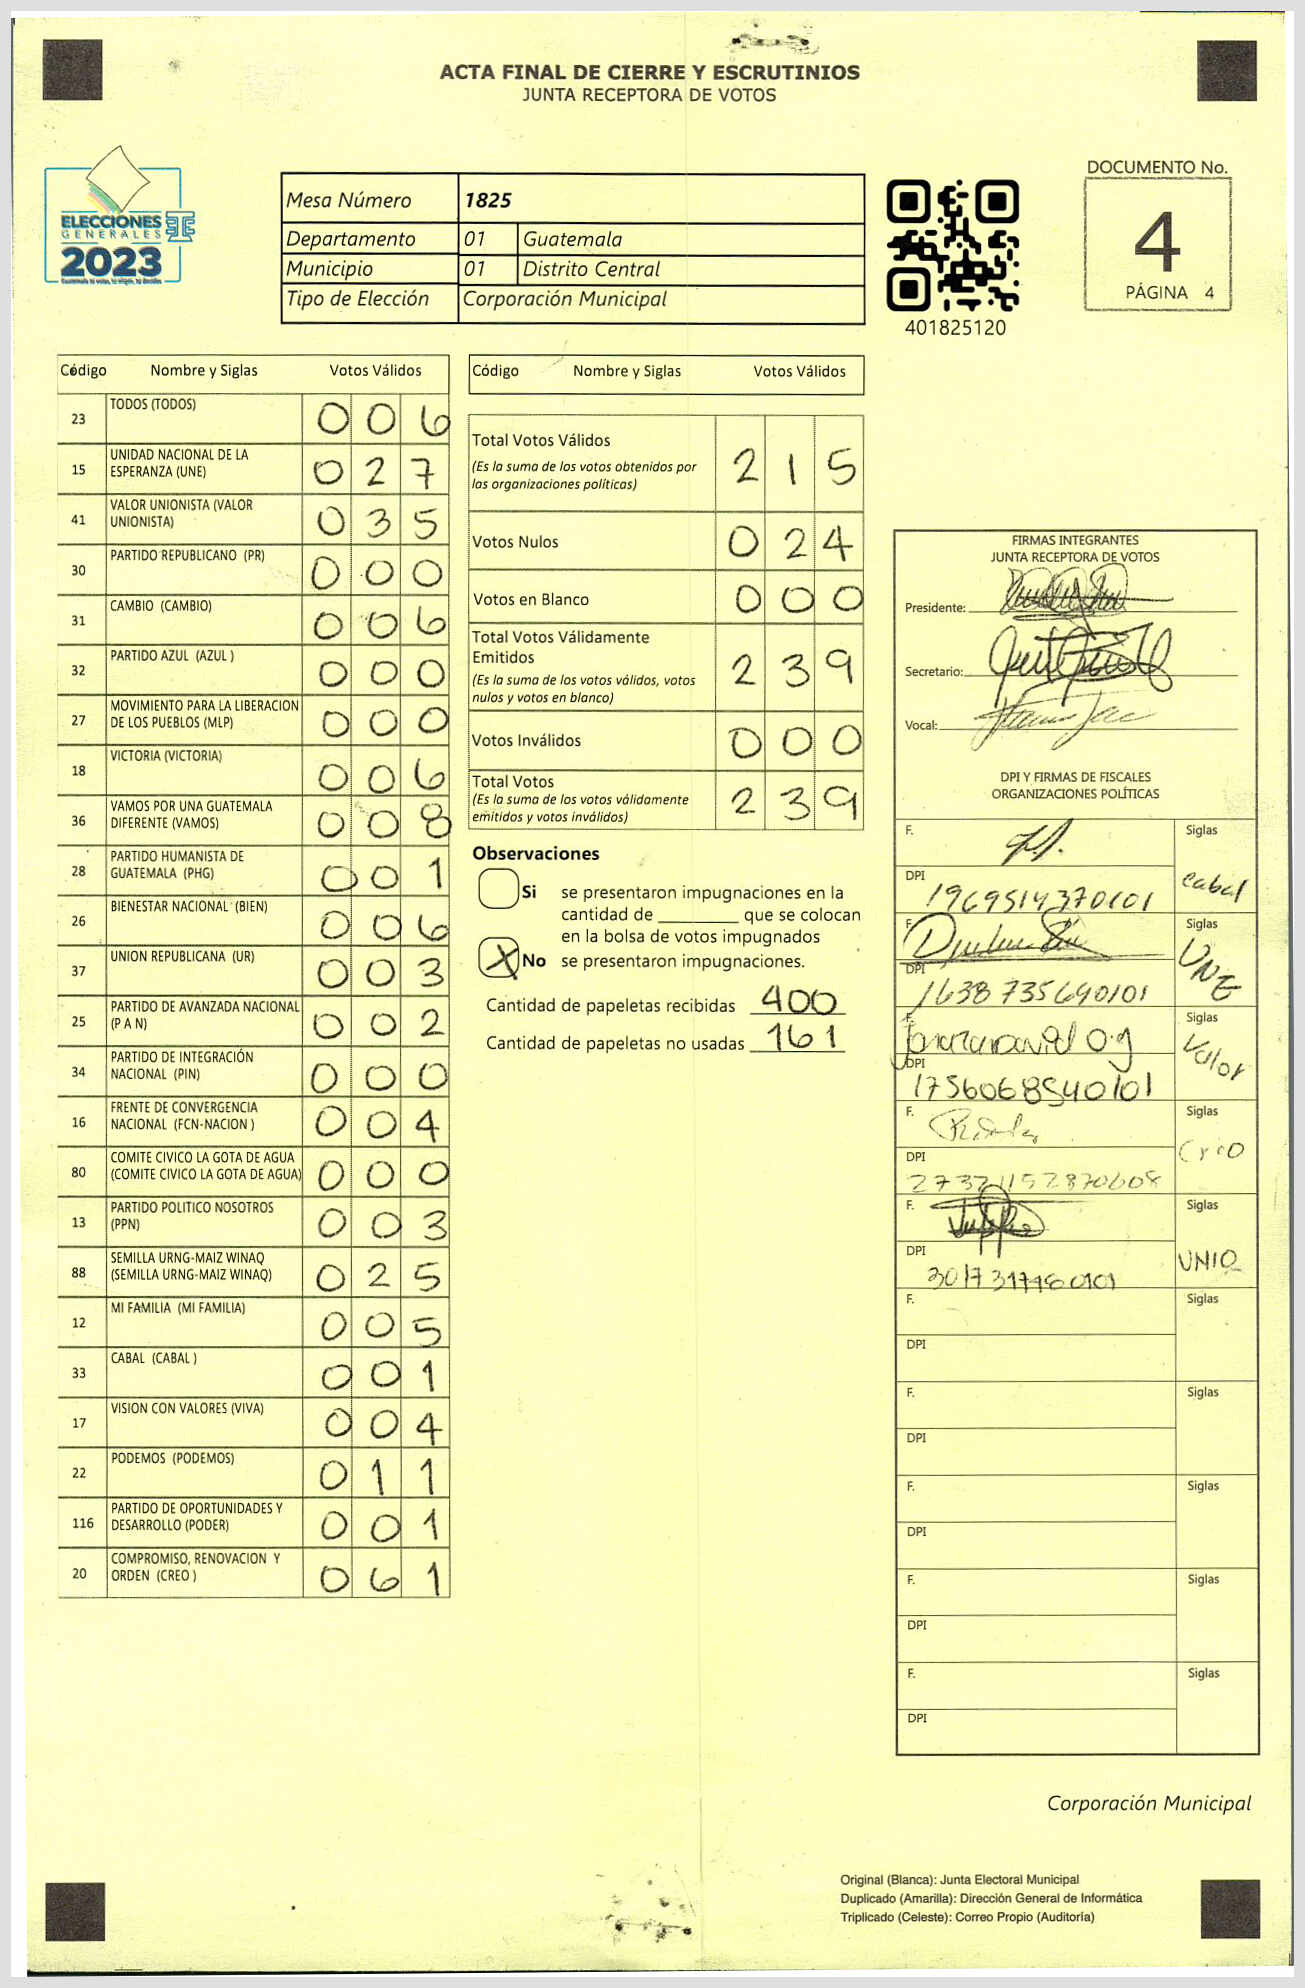 ACTA FINAL DE CIERRE Y ESCRUTINIOS
JUNTA RECEPTORA DE VOTOS
ELECCIONES
GENERALES
2023
Mesa Número 1825
Departamento 01 Guatemala
Municipio 01 Distrito Central
Tipo de Elección Corporación Municipal
401825120
DOCUMENTO No.
4
PÁGINA 4
Código Nombre y Siglas Votos Válidos
23 TODOS (TODOS) 0 0 6
15 UNIDAD NACIONAL DE LA
ESPERANZA (UNE) 0 2 7
41 VALOR UNIONISTA (VALOR
UNIONISTA) 0 3 5
30 PARTIDO REPUBLICANO (PR) 0 0 0
31 CAMBIO (CAMBIO) 0 0 6
32 PARTIDO AZUL (AZUL ) 0 0 0
27 MOVIMIENTO PARA LA LIBERACION
DE LOS PUEBLOS (MLP) 0 0 0
18 VICTORIA (VICTORIA) 0 0 6
36 VAMOS POR UNA GUATEMALA
DIFERENTE (VAMOS) 0 0 8
28 PARTIDO HUMANISTA DE
GUATEMALA (PHG) 0 0 1
26 BIENESTAR NACIONAL (BIEN) 0 0 6
37 UNION REPUBLICANA (UR) 0 0 3
25 PARTIDO DE AVANZADA NACIONAL
(P A N) 0 0 2
34 PARTIDO DE INTEGRACIÓN
NACIONAL (PIN) 0 0 0
16 FRENTE DE CONVERGENCIA
NACIONAL (FCN-NACION ) 0 0 4
80 COMITE CIVICO LA GOTA DE AGUA
(COMITE CIVICO LA GOTA DE AGUA) 0 0 0
13 PARTIDO POLITICO NOSOTROS
(PPN) 0 0 3
88 SEMILLA URNG-MAIZ WINAQ
(SEMILLA URNG-MAIZ WINAQ) 0 2 5
12 MI FAMILIA (MI FAMILIA) 0 0 5
33 CABAL (CABAL ) 0 0 1
17 VISION CON VALORES (VIVA) 0 0 4
22 PODEMOS (PODEMOS) 0 1 1
116 PARTIDO DE OPORTUNIDADES Y
DESARROLLO (PODER) 0 0 1
20 COMPROMISO, RENOVACION Y
ORDEN (CREO ) 0 6 1
Código Nombre y Siglas Votos Válidos
Total Votos Válidos 2 1 5
(Es la suma de los votos obtenidos por
las organizaciones políticas)
Votos Nulos 0 2 4
Votos en Blanco 0 0 0
Total Votos Válidamente
Emitidos 2 3 9
(Es la suma de los votos válidos, votos
nulos y votos en blanco)
Votos Inválidos 0 0 0
Total Votos 2 3 9
(Es la suma de los votos válidamente
emitidos y votos inválidos)
Observaciones
Si se presentaron impugnaciones en la
cantidad de ________ que se colocan
en la bolsa de votos impugnados
X No se presentaron impugnaciones.
Cantidad de papeletas recibidas 400
Cantidad de papeletas no usadas 161
FIRMAS INTEGRANTES
JUNTA RECEPTORA DE VOTOS
Presidente:
Secretario:
Vocal:
DPI Y FIRMAS DE FISCALES
ORGANIZACIONES POLÍTICAS
F. Siglas
DPI 1969514370101 Cabal
F. Siglas
DPI 1638735640101 UNE
F. Siglas
DPI 1756068540101 Valor
F. Siglas
DPI Creo
F. Siglas
DPI UNIO
F. Siglas
DPI
F. Siglas
DPI
F. Siglas
DPI
F. Siglas
DPI
F. Siglas
DPI
Corporación Municipal
Original (Blanca): Junta Electoral Municipal
Duplicado (Amarilla): Dirección General de Informática
Triplicado (Celeste): Correo Propio (Auditoría)